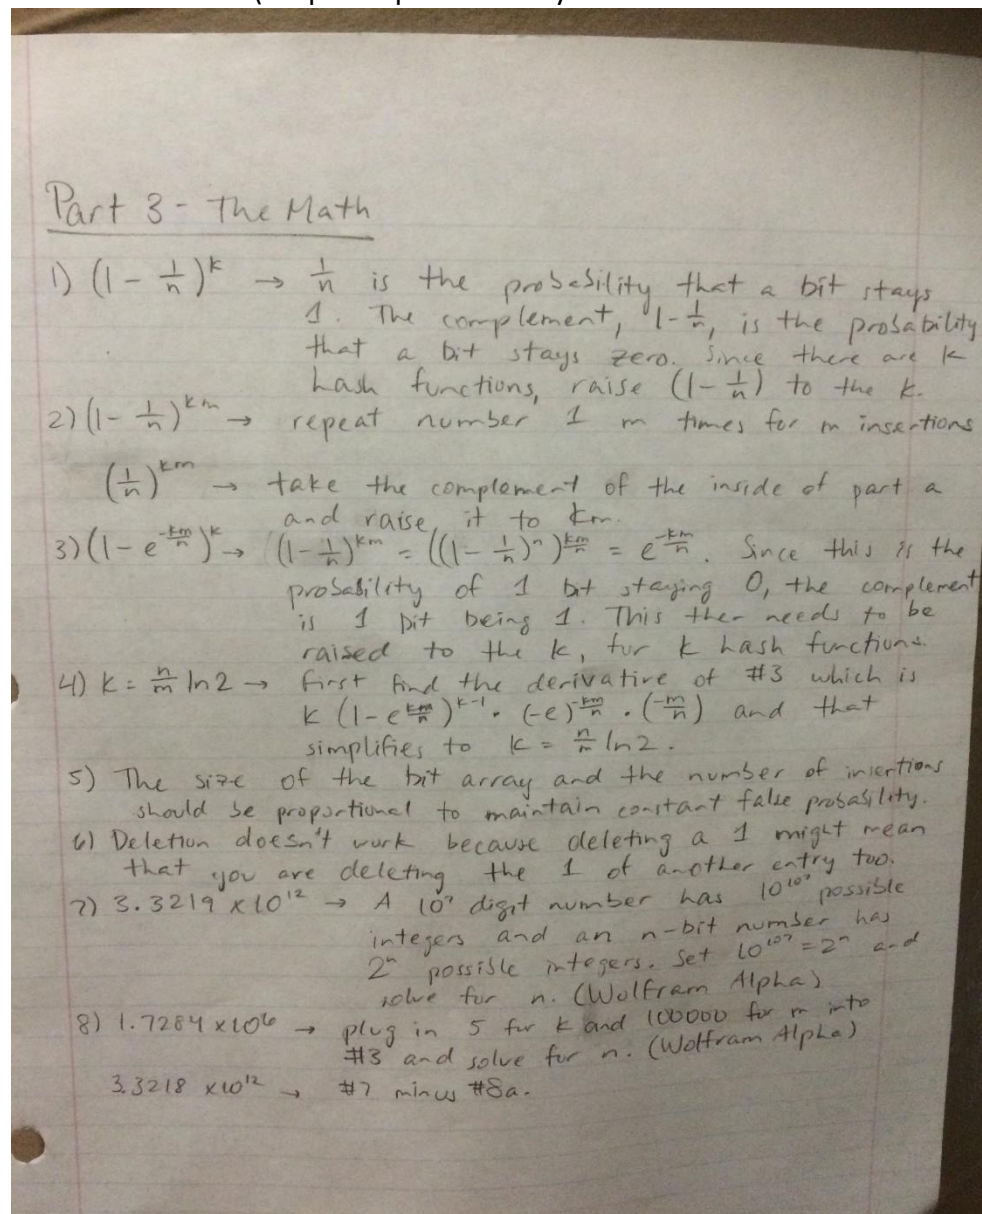 Part 3 - The Math
1) (1 - 1/n)^k → 1/n is the probability that a bit stays
1. The complement, 1-1/n, is the probability
that a bit stays zero. Since there are k
hash functions, raise (1-1/n) to the k.
2) (1 - 1/n)^km → repeat number 1 m times for m insertions
(1/n)^km → take the complement of the inside of part a
and raise it to km.
3) (1 - e^(-km/n))^k → (1 - 1/n)^km = ((1 - 1/n)^n)^(km/n) = e^(-km/n). Since this is the
probability of 1 bit staying 0, the complement
is 1 bit being 1. This then needs to be
raised to the k, for k hash functions.
4) k = n/m ln2 → first find the derivative of #3 which is
k (1-e^(km/n))^(k-1) · (-e)^(-km/n) · (-m/n) and that
simplifies to k = n/m ln2.
5) The size of the bit array and the number of insertions
should be proportional to maintain constant false probability.
6) Deletion doesn't work because deleting a 1 might mean
that you are deleting the 1 of another entry too.
7) 3.3219 x10^12 → A digit number has possible
integers and an n-bit number has
2^n possible integers. Set = 2^n and
solve for n. (Wolfram Alpha)
8) 1.7284 x10^6 → plug in 5 for k and 100000 for m into
#3 and solve for n. (Wolfram Alpha)
3.3218 x10^12 → #7 minus #8a.